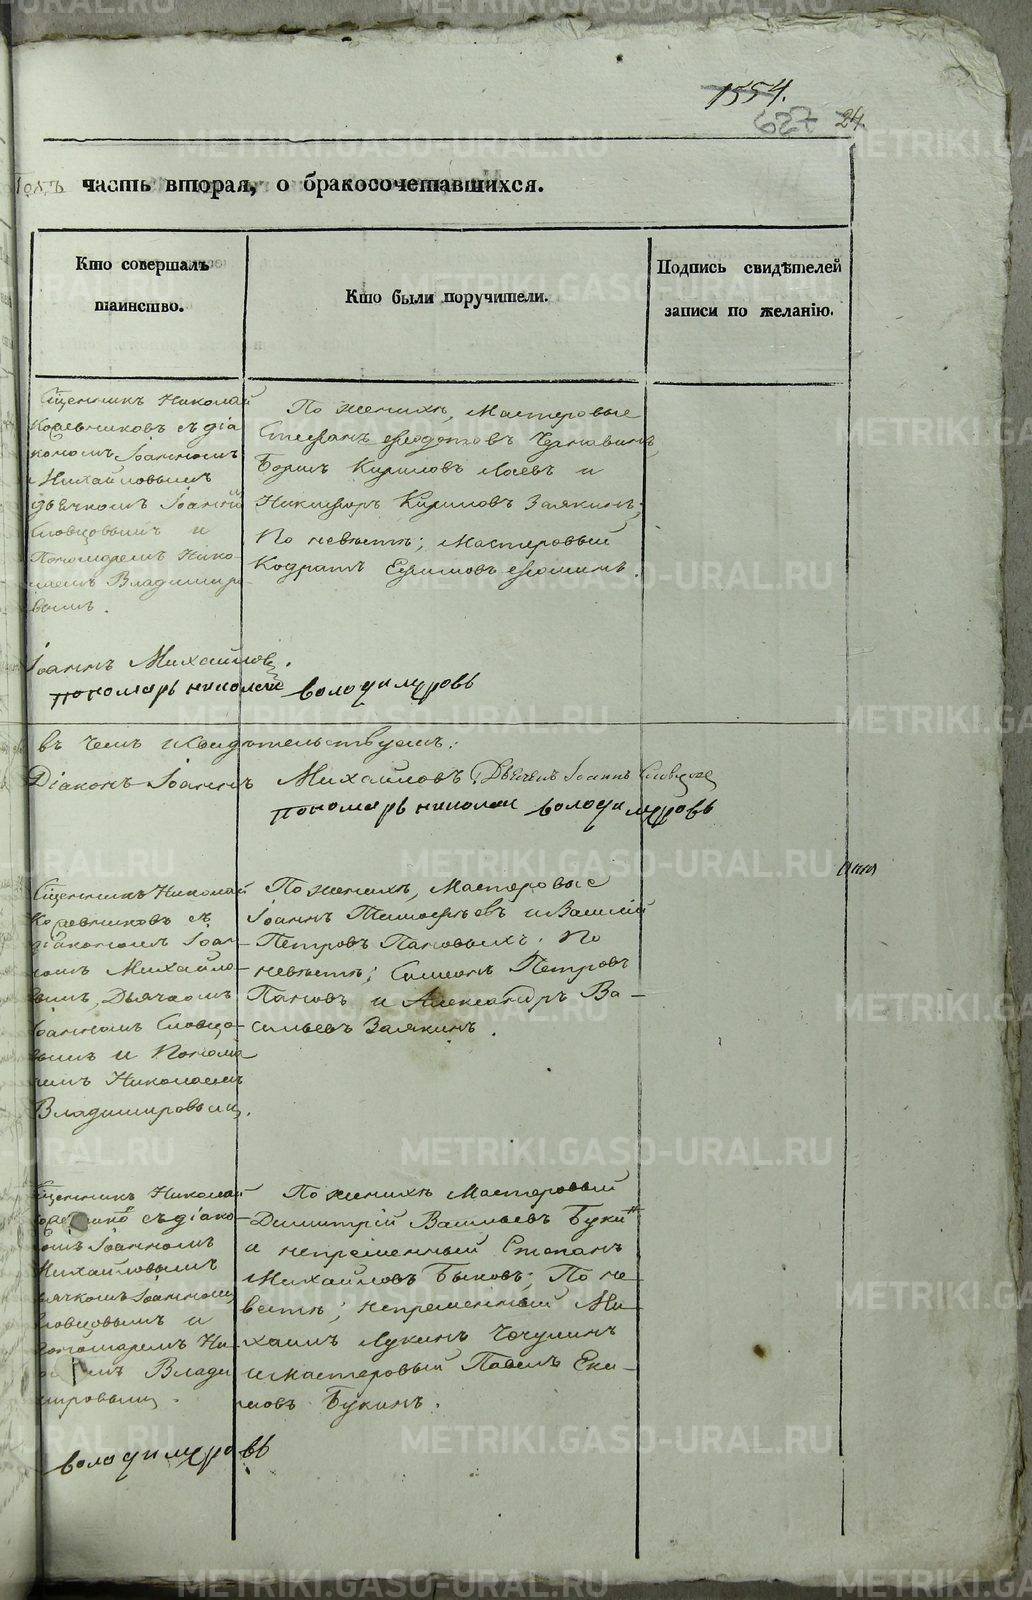 1554.
627 24.
часть вторая, о бракосочетавшихся.
Кто совершалъ
таинство.
Кто были поручители.
Подпись свидѣтелей
записи по желанію.
Сщенникъ Николай
Коревниковъ съ діа
кономъ Іоанномъ
Михайловымъ
дьячкомъ Іоанном
Словцовымъ и
Пономаремъ Нико-
лаемъ Владимиро
вымъ.
По женихѣ, Мастеровые
Стефанъ Феодотовъ Чернавинъ,
Борисъ Кириловъ Лаевъ и
Никифоръ Кириловъ Заякинъ;
По невѣстѣ; Мастеровый
Кодратъ Ефимовъ Фоминъ.
Іоаннъ Михайловъ.
пономарь николай володимеровъ
въ чемъ и свидѣтельствуемъ:
Діаконъ Іоаннъ Михайловъ Дьячекъ Іоаннъ Словцовъ
пономарь николаи володимеровъ
Сщенникъ Николай
Коревниковъ съ
діакономъ Іоан-
номъ Михайло-
вымъ, Дьячкомъ
Іоанномъ Словцо-
вымъ и Понома
ремъ Николаемъ
Владимировым.
По женихѣ, Мастеровые
Іоаннъ Тимофѣевъ и Василій
Петровъ Пановыхъ. По
невѣстѣ; Симеонъ Петровъ
Пановъ и Александръ Ва-
сильевъ Заякинъ.
Сщенникъ Николай
съ діако-
номъ Іоанномъ
Михайловымъ
дьячкомъ Іоанном
Словцовымъ и
Пономаремъ Ни-
колаемъ Влади
мировымъ.
По женихѣ Мастеровый
Димитрій Васильевъ Букин
и непремѣнный Степанъ
Михайловъ Быковъ; По не-
вестѣ; непремѣнный Ми-
хаилъ Лукинъ Чочулинъ
и мастеровый Павелъ Еки-
мовъ Букинъ.
володимеровъ